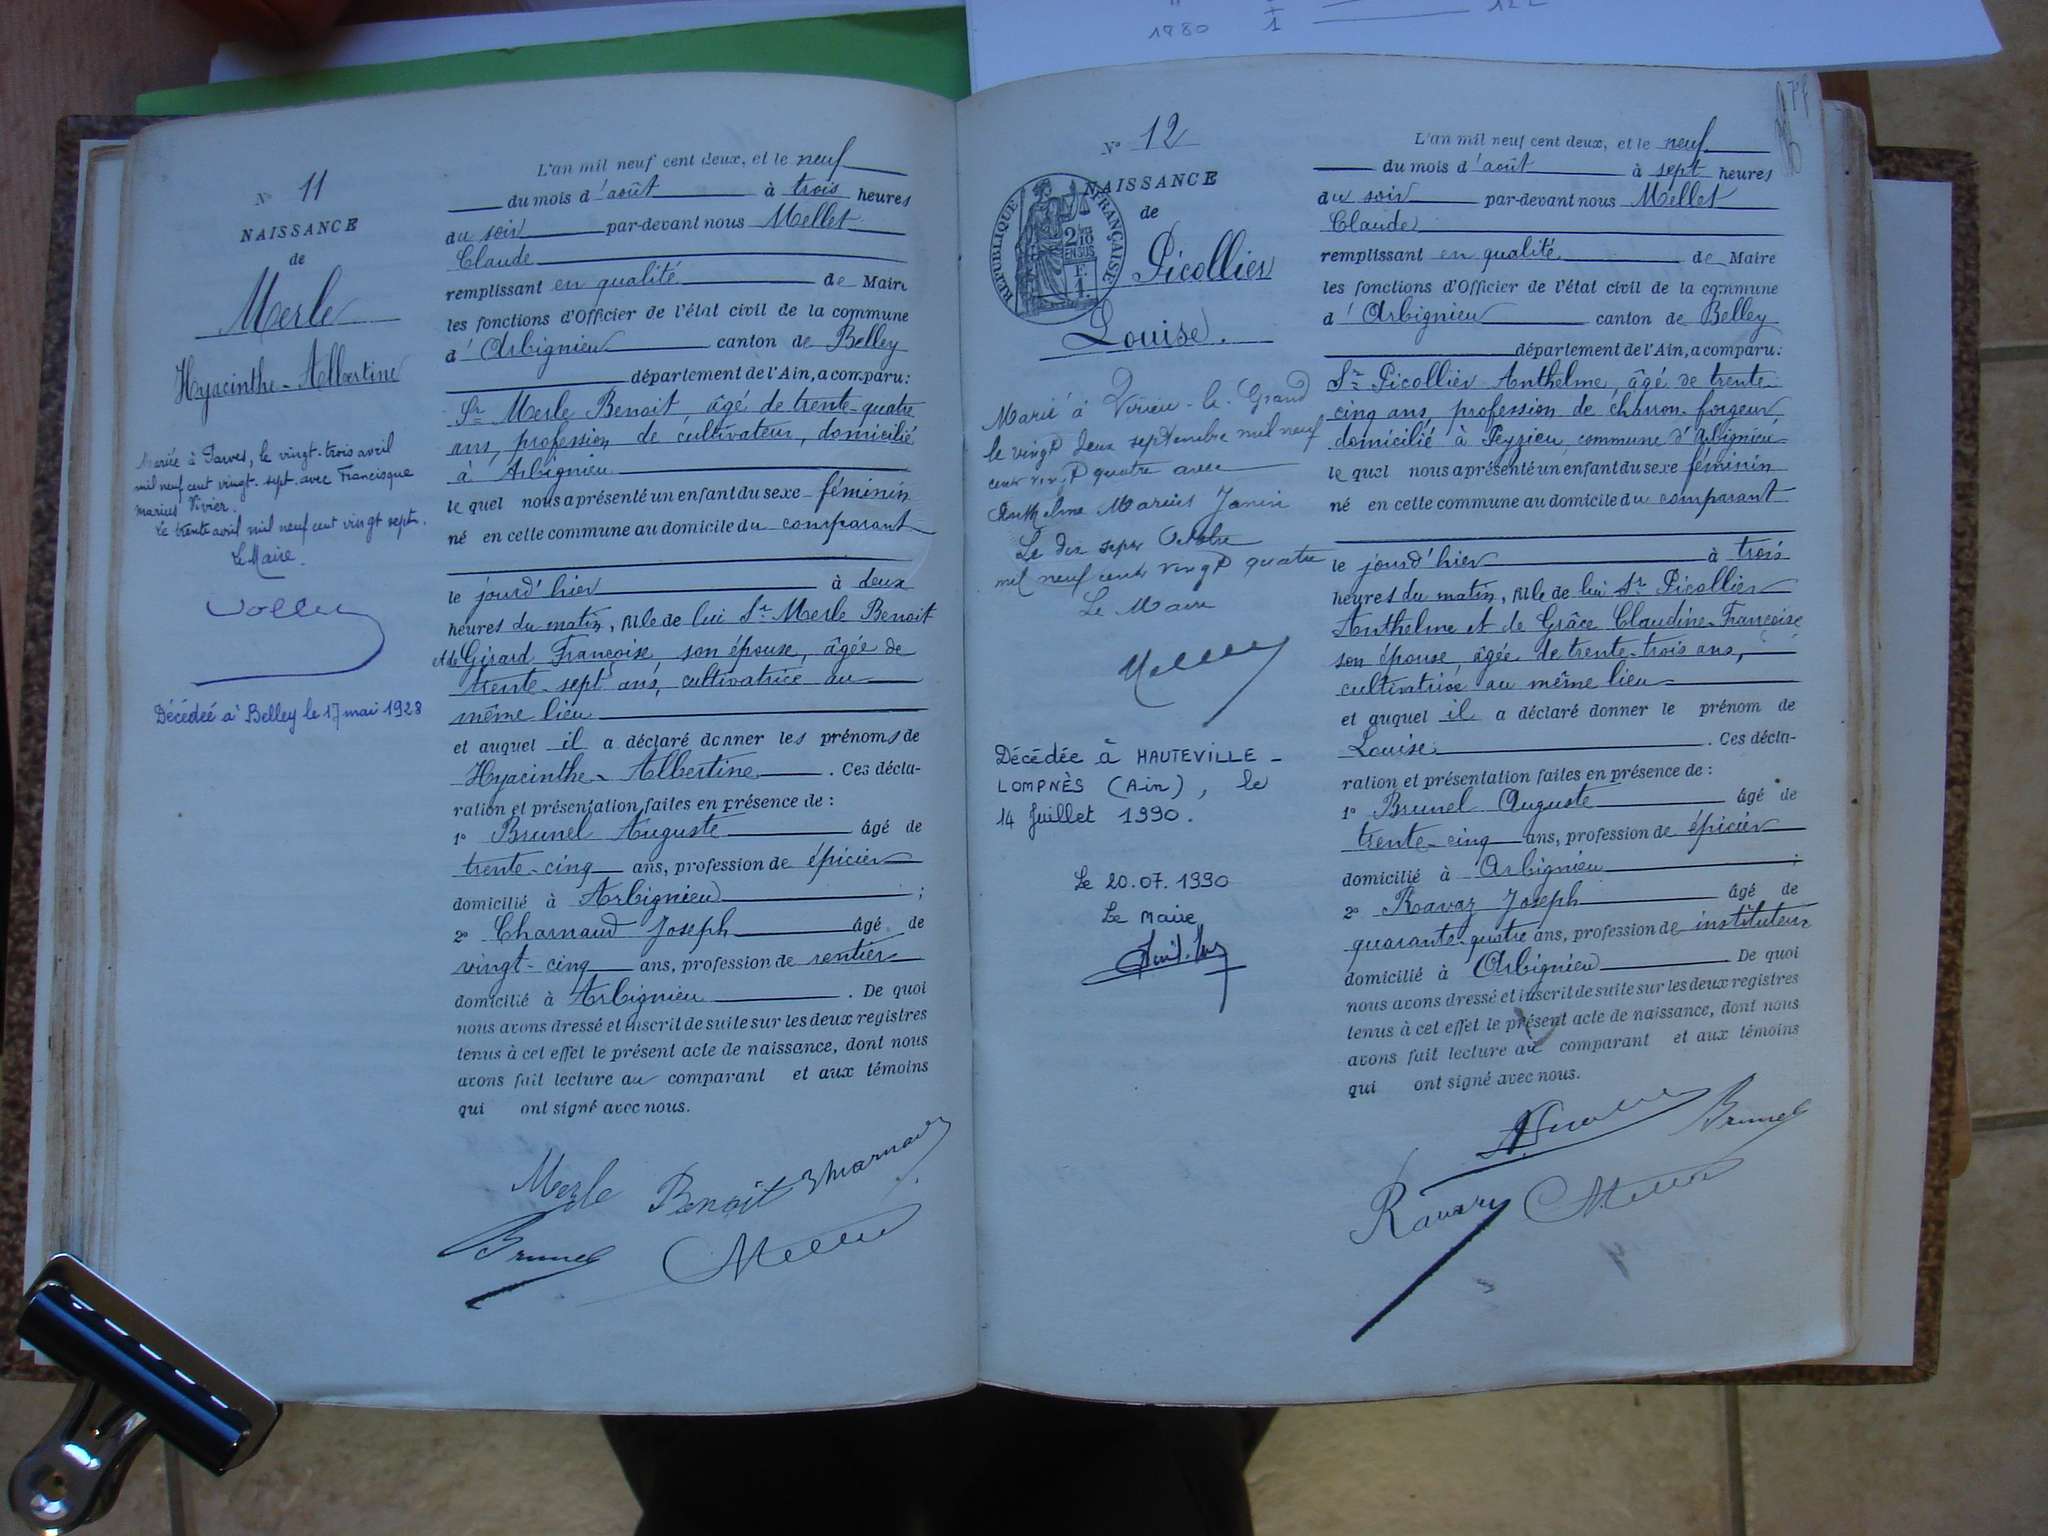 1980 1 122
N° 11
NAISSANCE
de
Merle
Hyacinthe-Albertine
Mariée à Parves, le vingt-trois avril
mil neuf cent vingt-sept avec Francisque
Marius Vivier.
Le trente avril mil neuf cent vingt sept.
Le Maire.
Décédée à Belley le 17 mai 1928
L'an mil neuf cent deux, et le neuf
du mois d'août à trois heures
du soir par-devant nous Mellet
Claude
remplissant en qualité de Maire
les fonctions d'Officier de l'état civil de la commune
d'Arbignieu canton de Belley
département de l'Ain, a comparu:
Sr Merle Benoit, âgé de trente-quatre
ans, profession de cultivateur, domicilié
à Arbignieu
le quel nous a présenté un enfant du sexe féminin
né en cette commune au domicile du comparant
le jourd'hier à deux
heures du matin, fille de lui Sr Merle Benoit
et de Girard Françoise son épouse, âgée de
trente-sept ans, cultivatrice au
même lieu
et auquel il a déclaré donner les prénoms de
Hyacinthe-Albertine. Ces décla-
ration et présentation faites en présence de :
1° Brunel Auguste âgé de
trente-cinq ans, profession de épicier
domicilié à Arbignieu ;
2° Charnaud Joseph âgé de
vingt-cinq ans, profession de rentier
domicilié à Arbignieu. De quoi
nous avons dressé et inscrit de suite sur les deux registres
tenus à cet effet le présent acte de naissance, dont nous
avons fait lecture au comparant et aux témoins
qui ont signé avec nous.
Merle Benoit Charnaud
Brunel Mellet
N° 12
NAISSANCE
de
RÉPUBLIQUE FRANÇAISE
2/10 EN SUS
F. 1.
Picollier
Louise.
Marié à Virieu-le-Grand
le vingt deux septembre mil neuf
cent vingt quatre avec
Anthelme Marius Janin
Le dix sept Octobre
mil neuf cent vingt quatre
Le Maire
Décédée à HAUTEVILLE-
LOMPNÈS (Ain), le
14 Juillet 1990.
Le 20.07.1990
Le Maire
L'an mil neuf cent deux, et le neuf
du mois d'août à sept heures
du soir par-devant nous Mellet
Claude
remplissant en qualité de Maire
les fonctions d'Officier de l'état civil de la commune
d'Arbignieu canton de Belley
département de l'Ain, a comparu:
Sr Picollier Anthelme, âgé de trente-
cinq ans, profession de charron-forgeur
domicilié à Peyzieu, commune d'Arbignieu
le quel nous a présenté un enfant du sexe féminin
né en cette commune au domicile du comparant
le jourd'hier à trois
heures du matin, fille de lui Sr Picollier
Anthelme et de Grâce Claudine-Françoise
son épouse, âgée de trente-trois ans,
cultivatrice au même lieu
et auquel il a déclaré donner le prénom de
Louise. Ces décla-
ration et présentation faites en présence de :
1° Brunel Auguste âgé de
trente-cinq ans, profession de épicier
domicilié à Arbignieu ;
2° Ravaz Joseph âgé de
quarante-quatre ans, profession de instituteur
domicilié à Arbignieu De quoi
nous avons dressé et inscrit de suite sur les deux registres
tenus à cet effet le présent acte de naissance, dont nous
avons fait lecture au comparant et aux témoins
qui ont signé avec nous.
Brunel
Ravaz Mellet